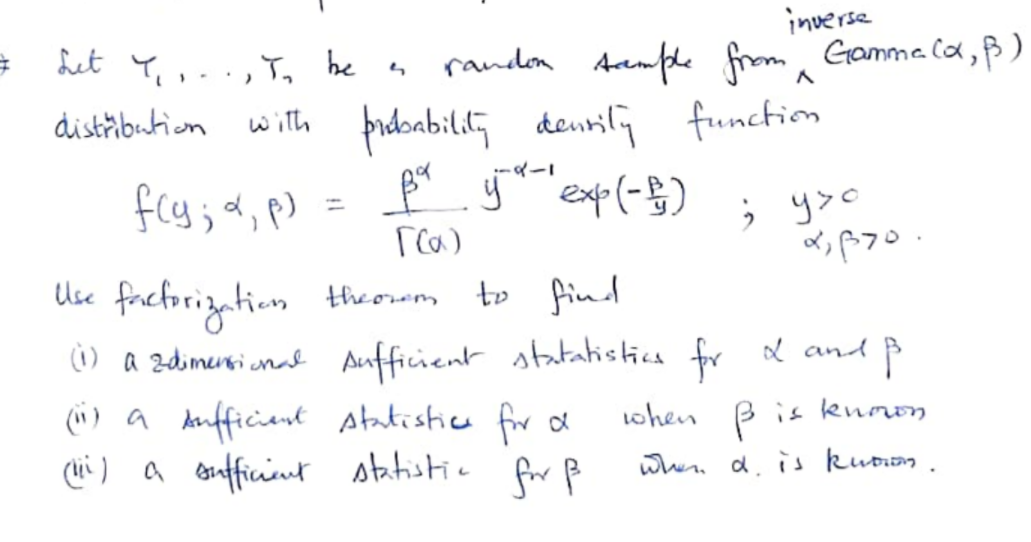 inverse
Let Y₁, ..., Yₙ be a random sample from ^ Gamma(α, β)
distribution with probability density function
f(y; α, β) = β^α / Γ(α) y^(-α-1) exp(-β/y) ; y>0
α, β>0.
Use factorization theorem to find
(i) a 2dimensional sufficient statatistics for α and β
(ii) a sufficient statistics for α when β is known
(iii) a sufficient statistic for β when α. is known.